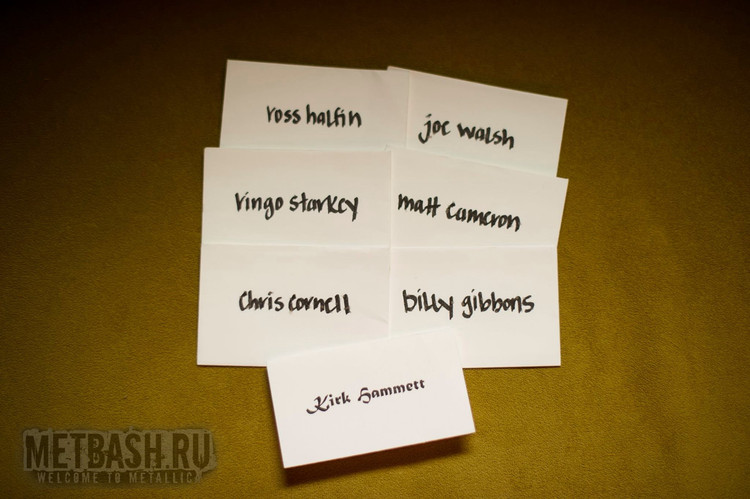 ross halfin
joe walsh
ringo starkey
matt cameron
chris cornell
billy gibbons
Kirk Hammett
METBASH.RU
WELCOME TO METALLIC